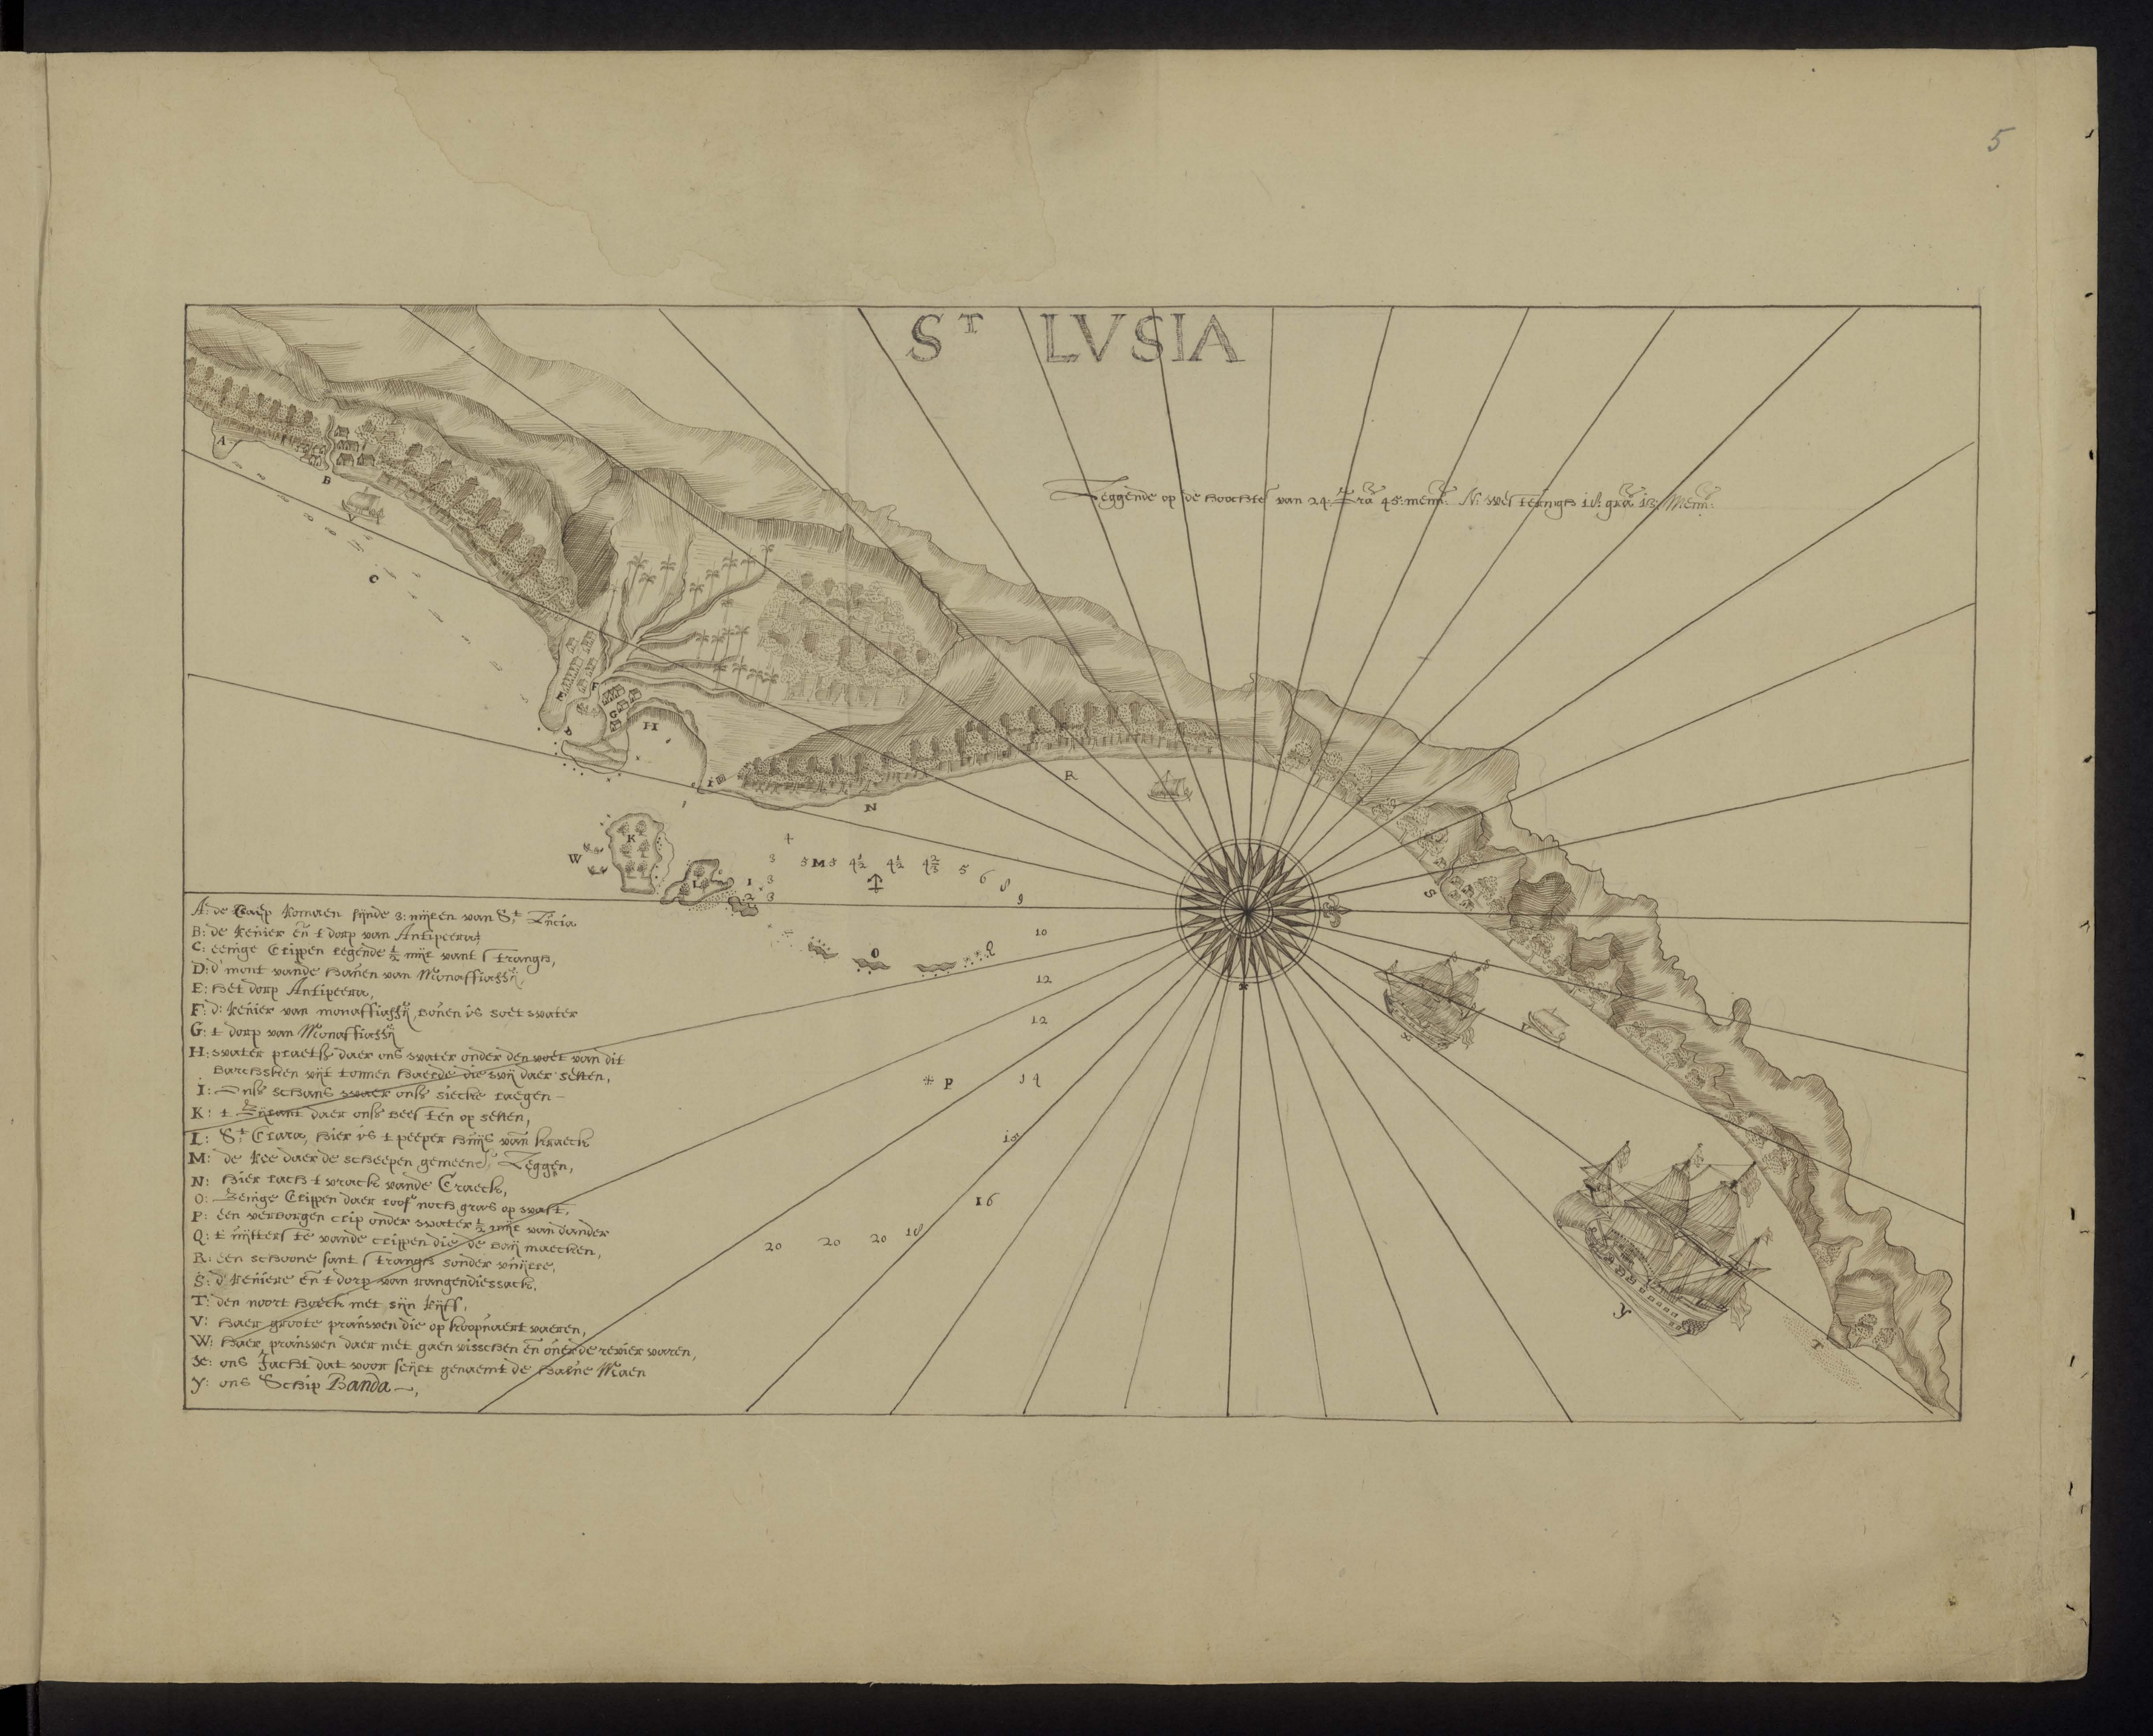 5
ST LVSIA
Leggende op de hoochte van 24: Gra 45: menn: N: westeringh 18: gra 13: Menn:
A
B
V
C
E
F
D
G
H
I
R
N
K
W
L
4
3 5 M 5 4½ 4½ 4⅔ 5 6 8
1 3
2 3
9
10
O Q
12
12
* P 14
15
16
20 20 20 18
S
X
V
Y
T
A: de Caep Romaen sijnde 3: mijlen van St Lucia
B: de Revier en t dorp van Antipeera
C: eenige Clippen legende ½ mijl vant strangh,
D: d mont vande haven van Monaffiassy
E: het dorp Antipeera,
F: d: Revier van monaffiassy, boven is soet water
G: t dorp van Monaffiassy
H: water plaets daer ons water onder den voet van dit
barchsken uijt tonnen haelde die wij daer setten,
I: Ons schans waer ons siecke laegen
K: t Eijlant daer ons beesten op setten,
L: St Clara, hier is t peeper huijs vant kraeck
M: de Ree daer de scheepen gemeenl: Leggen,
N: hier lach t wrack vande Craeck,
O: Eenige Clippen daer loof noch gras op wast,
P: een verborgen clip onder water ½ mijl van dander
Q: t uijtterste vande clippen die de baij maecken,
R: een schoone sant strangh sonder vuijlte,
S: d Reviere en t dorp van rangendiessack,
T: den noort hoeck met sijn Rijff,
V: haer groote prauwen die op koopvaert vaeren,
W: haer prauwen daer met gaen visschen en over de revier varen,
X: ons Jacht dat voor seijlt genaemt de halve Maen
Y: ons Schip Banda